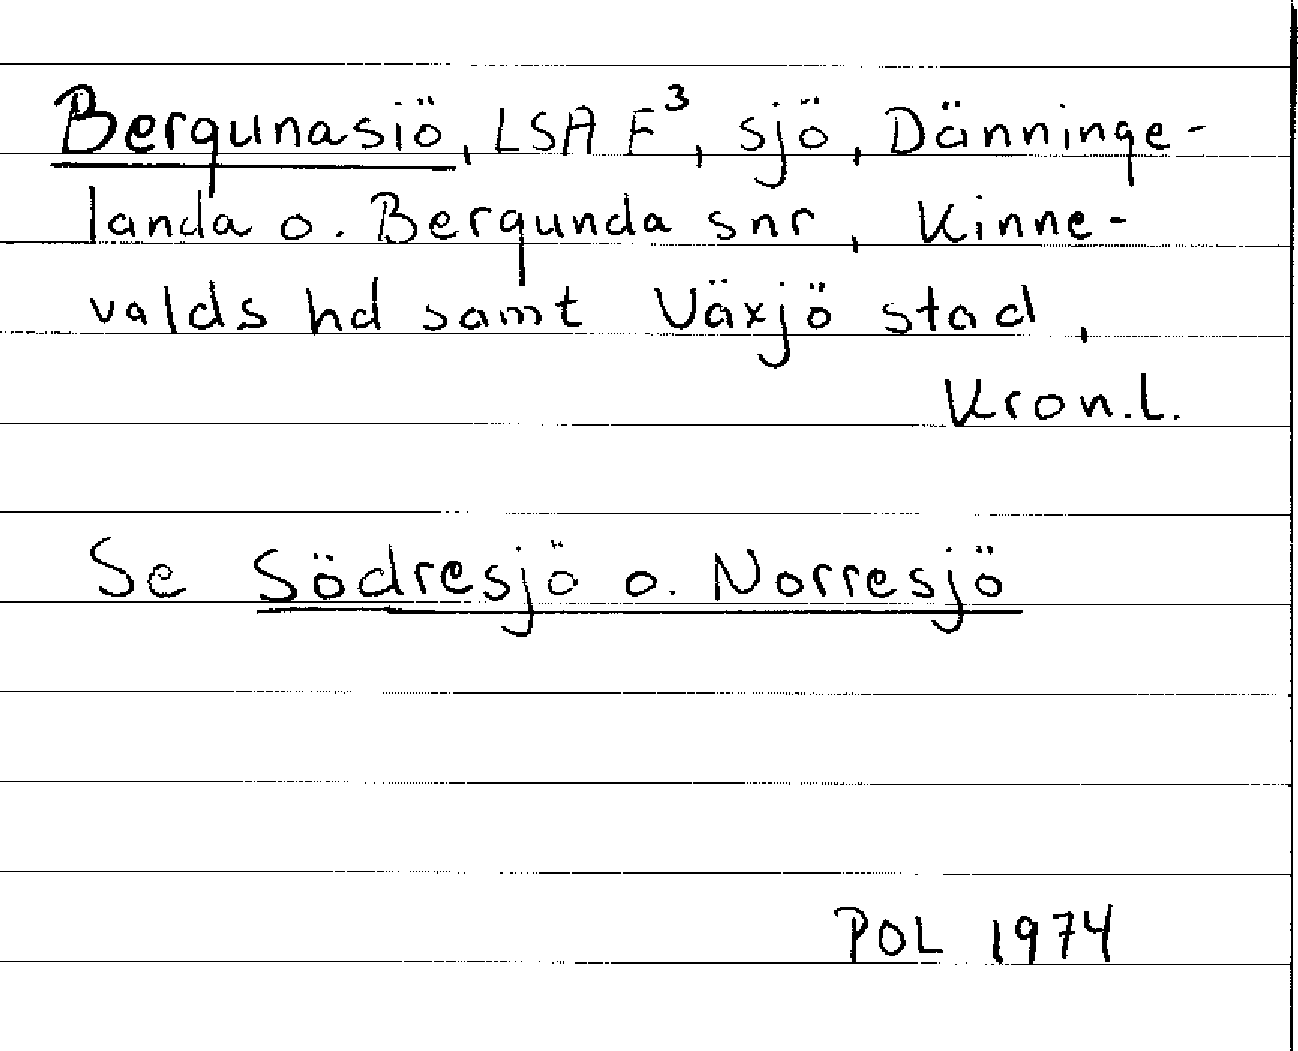 Bergunasiö, LSA F³, sjö, Dänninge-
landa o. Bergunda snr, Kinne-
valds hd samt Växjö stad,
Kron.l.
Se Södresjö o. Norresjö
POL 1974